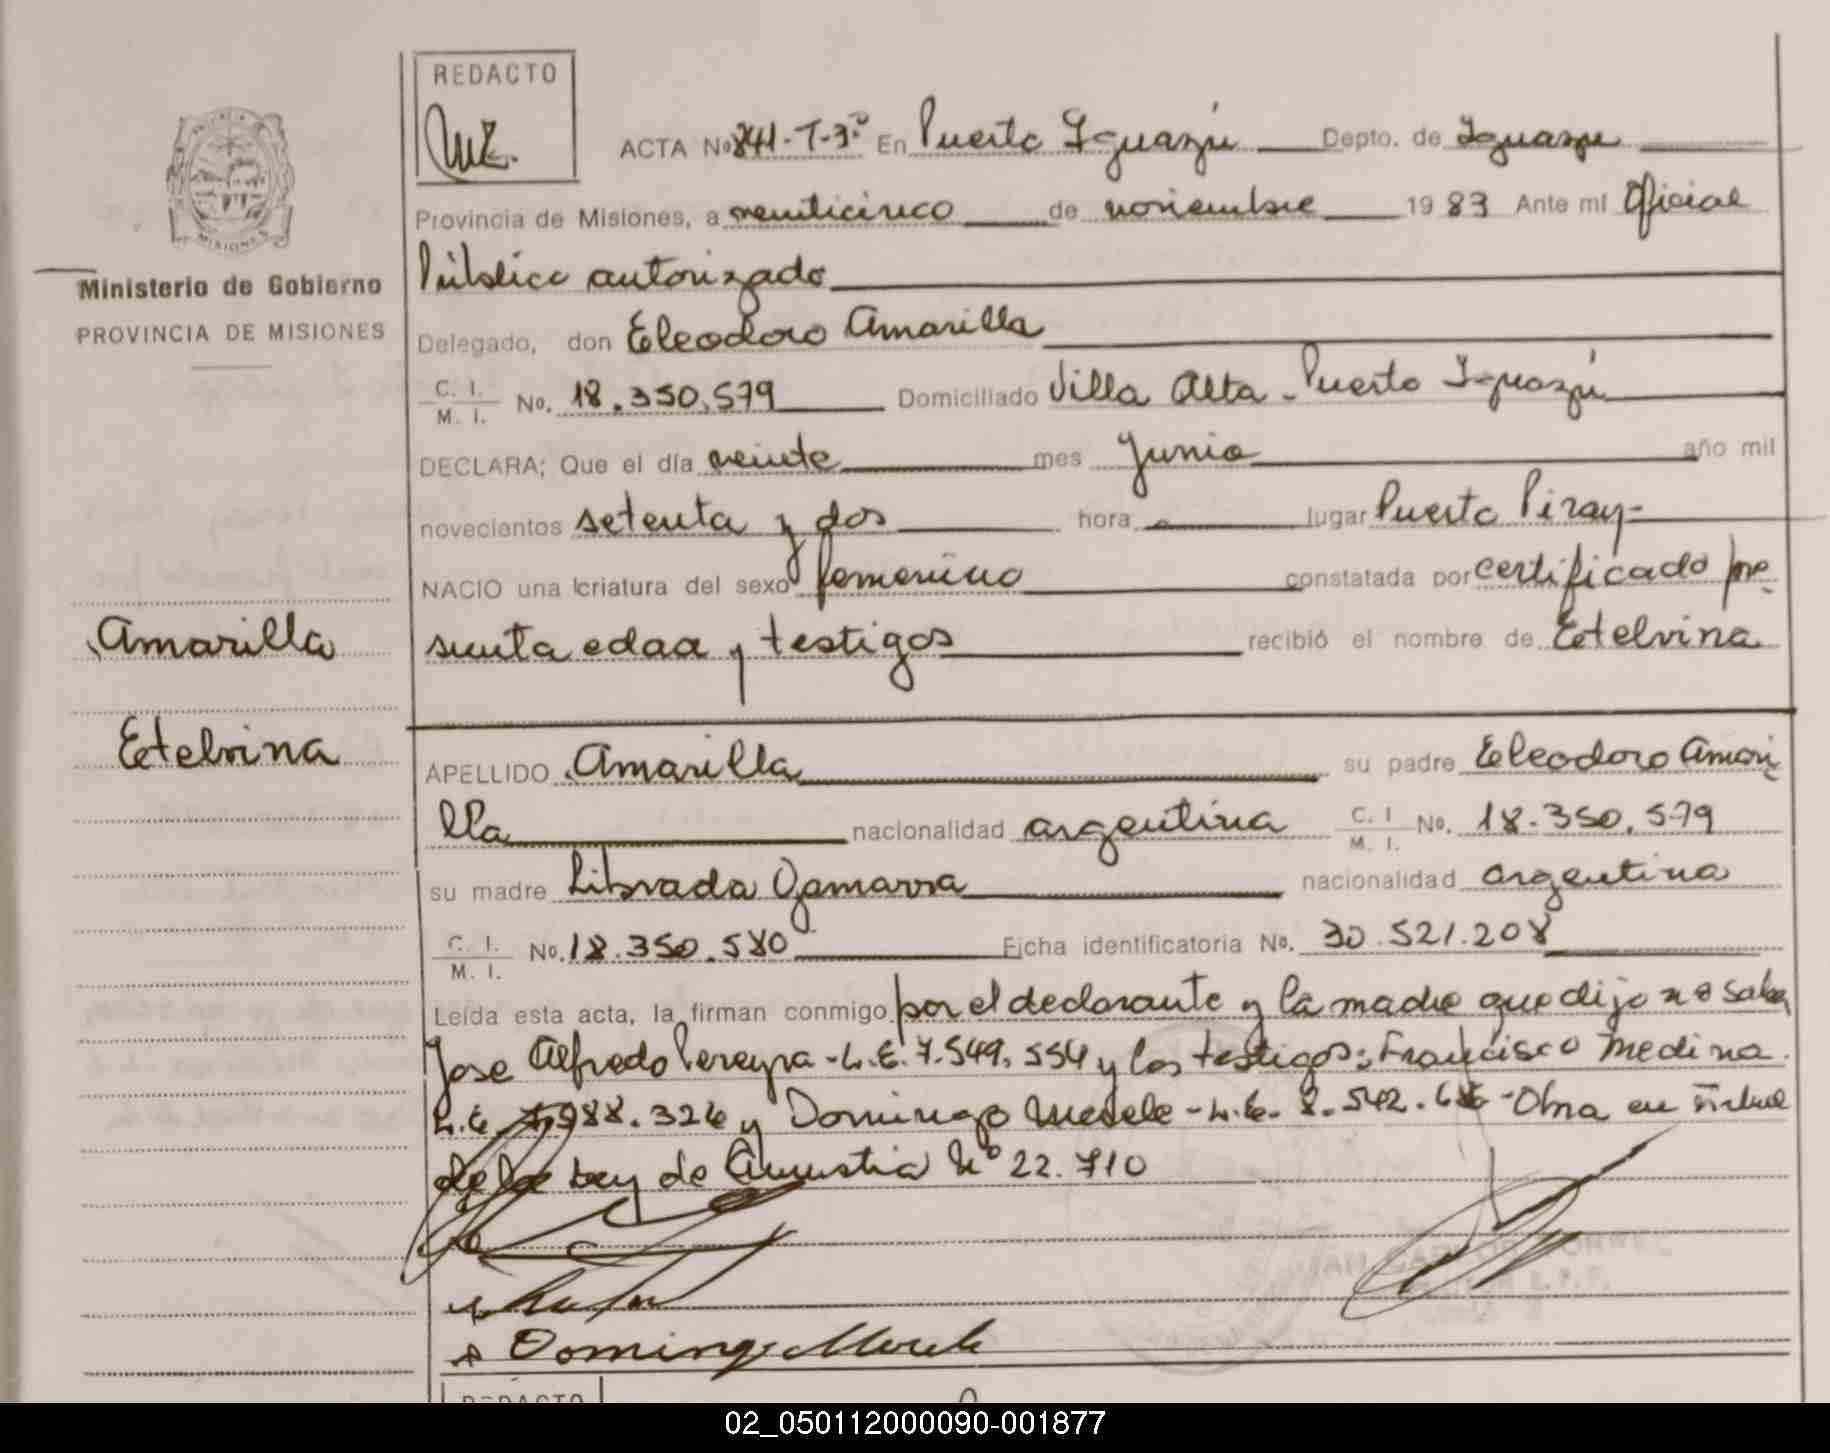 REDACTO
MISIONES
Ministerio de Gobierno
PROVINCIA DE MISIONES
Amarilla
Etelvina
ACTA No 841-T-3º En Puerto Iguazú Depto. de Iguazu
Provincia de Misiones, a veinticinco de noviembre 1983 Ante mi Oficial
Público autorizado
Delegado, don Eleodoro Amarilla
C. I. M. I. No. 18.350.579 Domiciliado Villa Alta - Puerto Iguazú
DECLARA; Que el día veinte mes Junio año mil
novecientos setenta y dos hora lugar Puerto Piray-
NACIO una criatura del sexo femenino constatada por certificado pre
sunta edad y testigos recibió el nombre de Etelvina
APELLIDO Amarilla su padre Eleodoro Amari
lla nacionalidad argentina C. I M. I. No. 18.350.579
su madre Librada Gamarra nacionalidad argentina
C. I. M. I. No. 18.350.580 Ficha identificatoria No. 30.521.208
Leída esta acta, la firman conmigo por el declarante y la madre que dijo no saber
Jose Alfredo Pereyra - L.E. 7.549.554 y los testigos: Francisco Medina.
L.E. 988.326 y Domingo - L.E. 8.542. - Obra en virtud
de la Ley de Amnistia Nº 22.710
Domingo
REDACTO
02_050112000090-001877